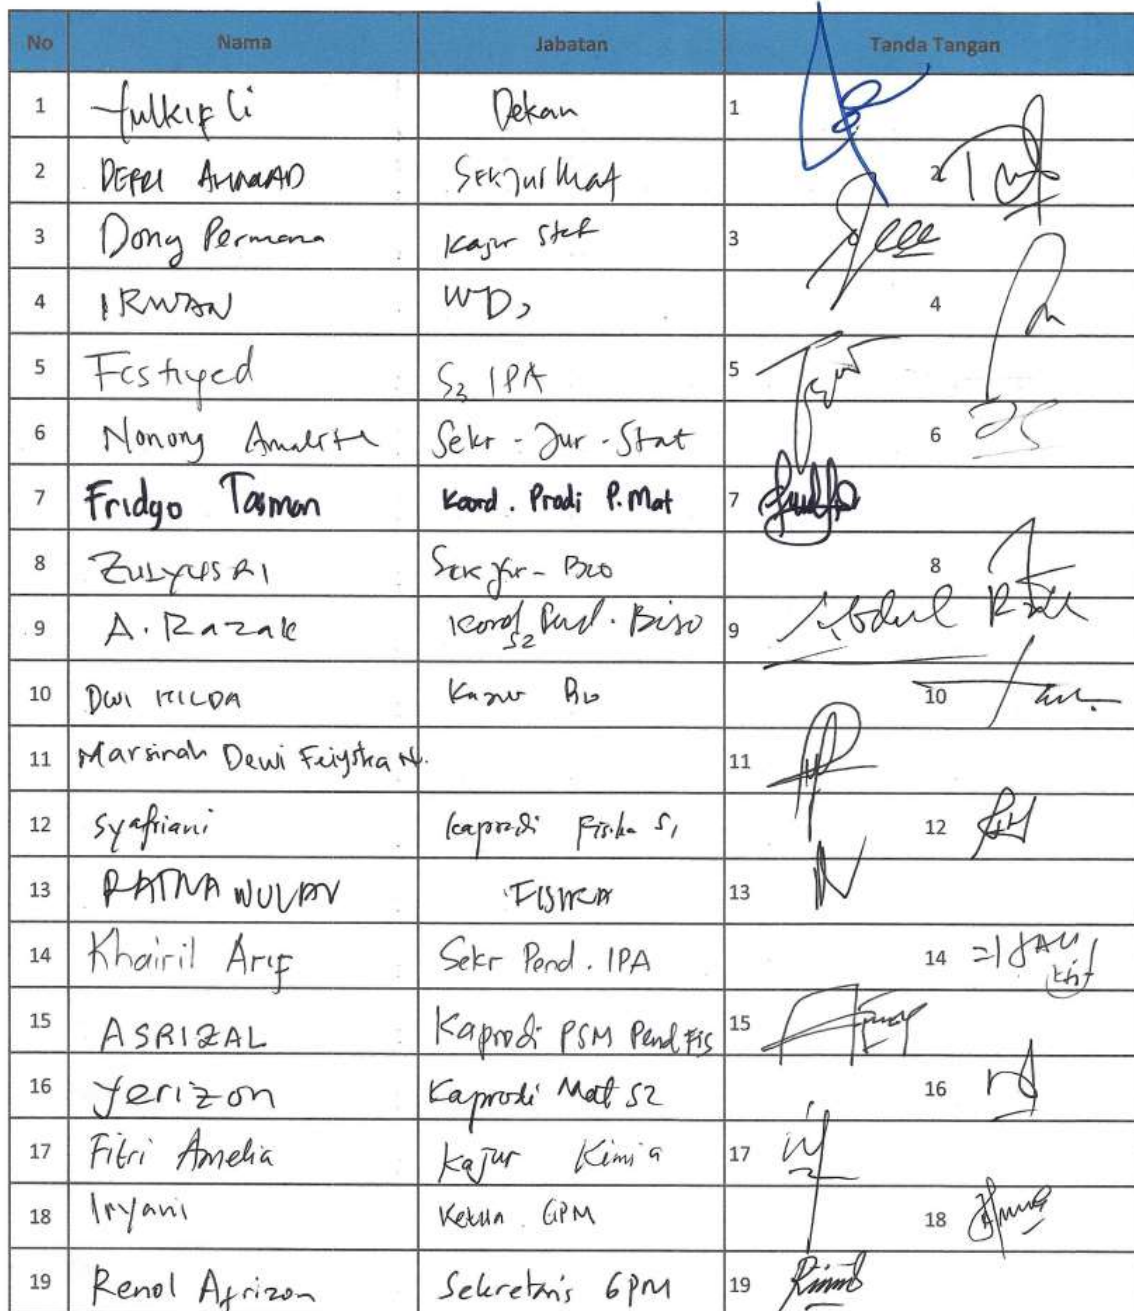 No Nama Jabatan Tanda Tangan
1 Zulkifli Dekan 1
2 DEFRI AHMAD Sekjur Mat 2
3 Dony Permana Kajur Stat 3
4 IRWAN WD2 4
5 Festiyed S2 IPA 5
6 Nonong Amalita Sekr - Jur - Stat 6
7 Fridgo Tasman Koord. Prodi P. Mat 7
8 ZULYUSRI Sekjur - Bio 8
9 A. Razak Koord S2 Pend. Bio 9 Abdul Razak
10 DWI HILDA Kajur Bio 10
11 Marsinah Dewi 11
12 Syafriani Kaprodi Fisika S1 12
13 RATNA WULAN FISIKA 13
14 Khairil Arif Sekr Pend. IPA 14
15 ASRIZAL Kaprodi PSM Pend Fis 15
16 Yerizon Kaprodi Mat S2 16
17 Fitri Amelia Kajur Kimia 17
18 Iryani Ketua GPM 18
19 Renol Afrizon Sekretaris GPM 19